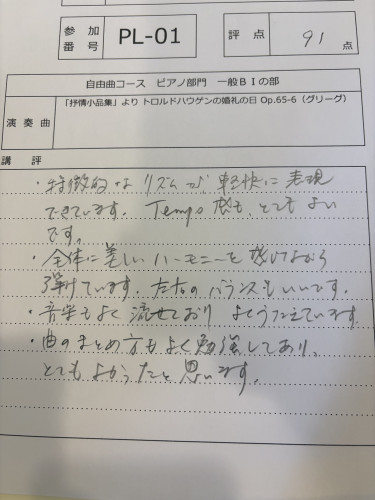 参加番号 PL-01 評点 91点
自由曲コース ピアノ部門 一般BⅠの部
演奏曲 「抒情小品集」より トロルドハウゲンの婚礼の日 Op.65-6（グリーグ）
講評
・特徴的なリズムが軽快に表現
できています。Tempo感も、とてもよい
です。
・全体に美しいハーモニーを感じながら
弾けています。左右のバランスもいいです。
・音楽もよく流せており よくうたえています。
・曲のまとめ方もよく勉強してあり、
とてもよかったと思います。